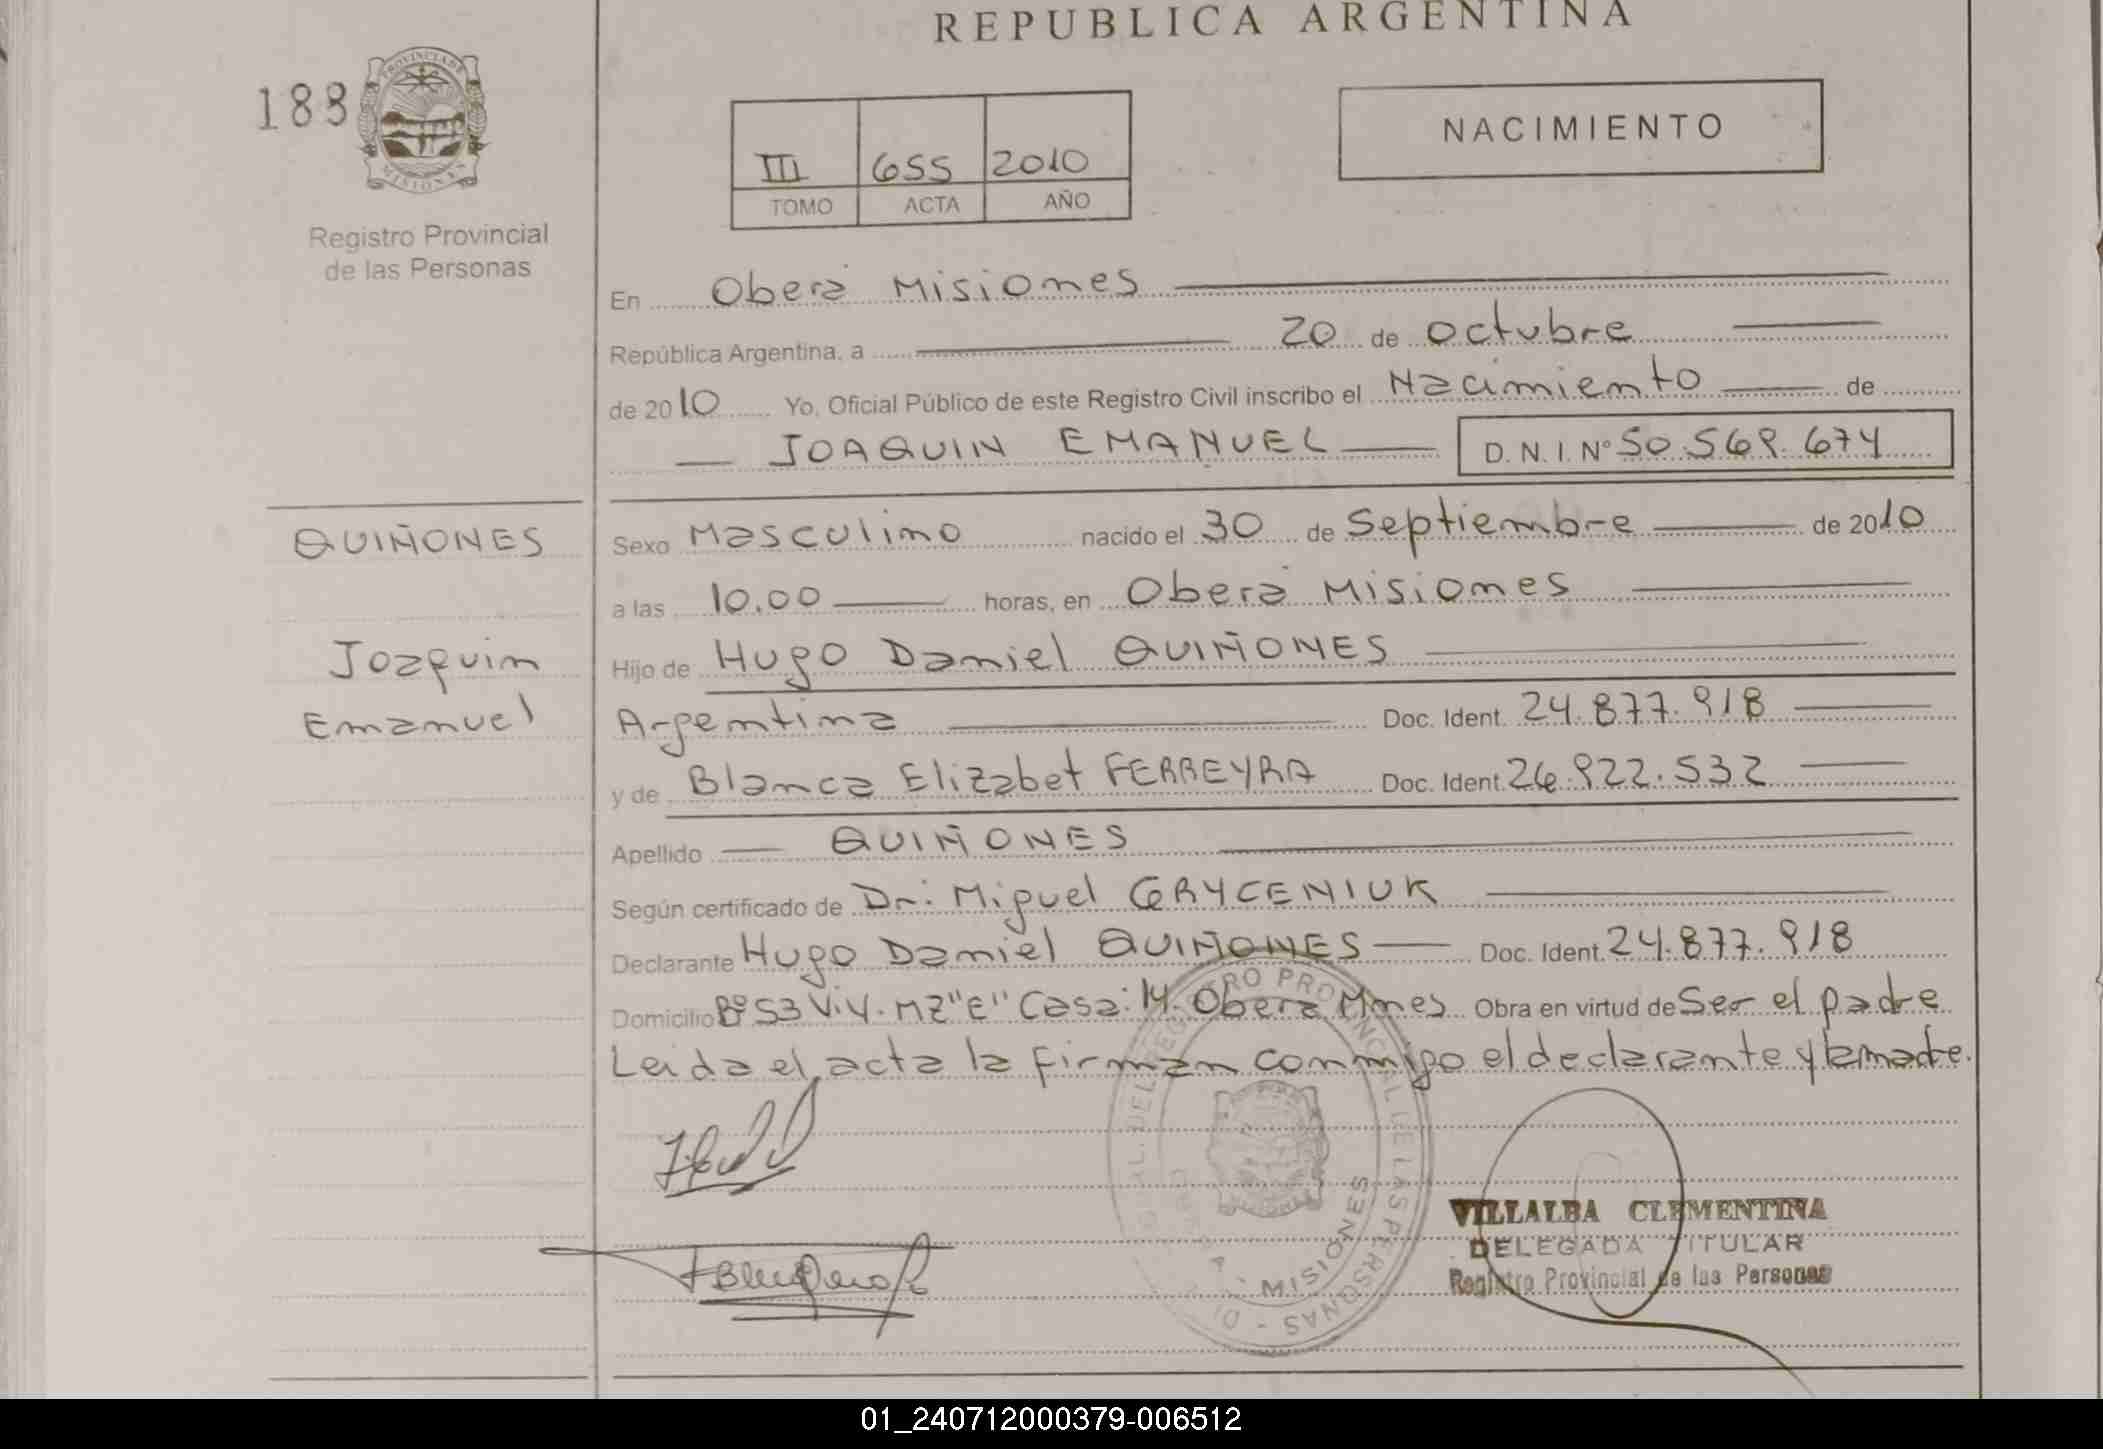 REPUBLICA ARGENTINA
188
PROVINCIA DE
MISIONES
Registro Provincial
de las Personas
III 655 2010
TOMO ACTA AÑO
NACIMIENTO
En Oberá Misiones
República Argentina, a 20 de octubre
de 2010 Yo, Oficial Público de este Registro Civil inscribo el Nacimiento de
JOAQUIN EMANUEL D.N.I. Nº 50.569.674
QUIÑONES
Joaquin
Emanuel
Sexo Masculino nacido el 30 de Septiembre de 2010
a las 10.00 horas, en Oberá Misiones
Hijo de Hugo Daniel QUIÑONES
Argentina Doc. Ident. 24.877.918
y de Blanca Elizabet FERREYRA Doc. Ident. 26.922.532
Apellido QUIÑONES
Según certificado de Dr: Miguel GRYCENIUK
Declarante Hugo Daniel QUIÑONES Doc. Ident. 24.877.918
Domicilio Bº 53 Viv. MZ "E" Casa: 14. Oberá Mnes Obra en virtud de Ser el padre
Leida el acta la firman conmigo el declarante y la madre.
VILLALBA CLEMENTINA
DELEGADA TITULAR
Registro Provincial de las Personas
MISIONES
01_240712000379-006512